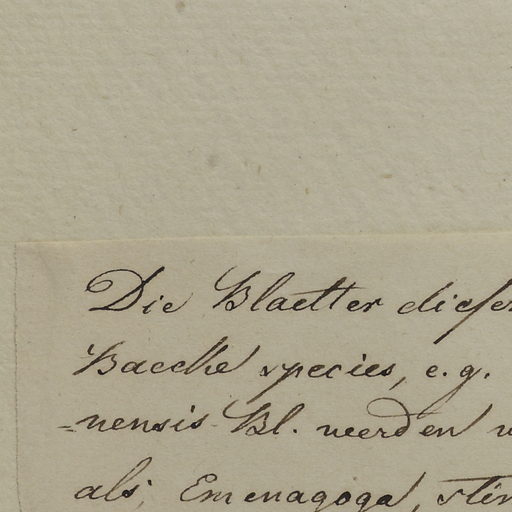 Die Blaetter dieser
Baeche species, e.g.
=nensis Bl. werden
als Emenagoga,